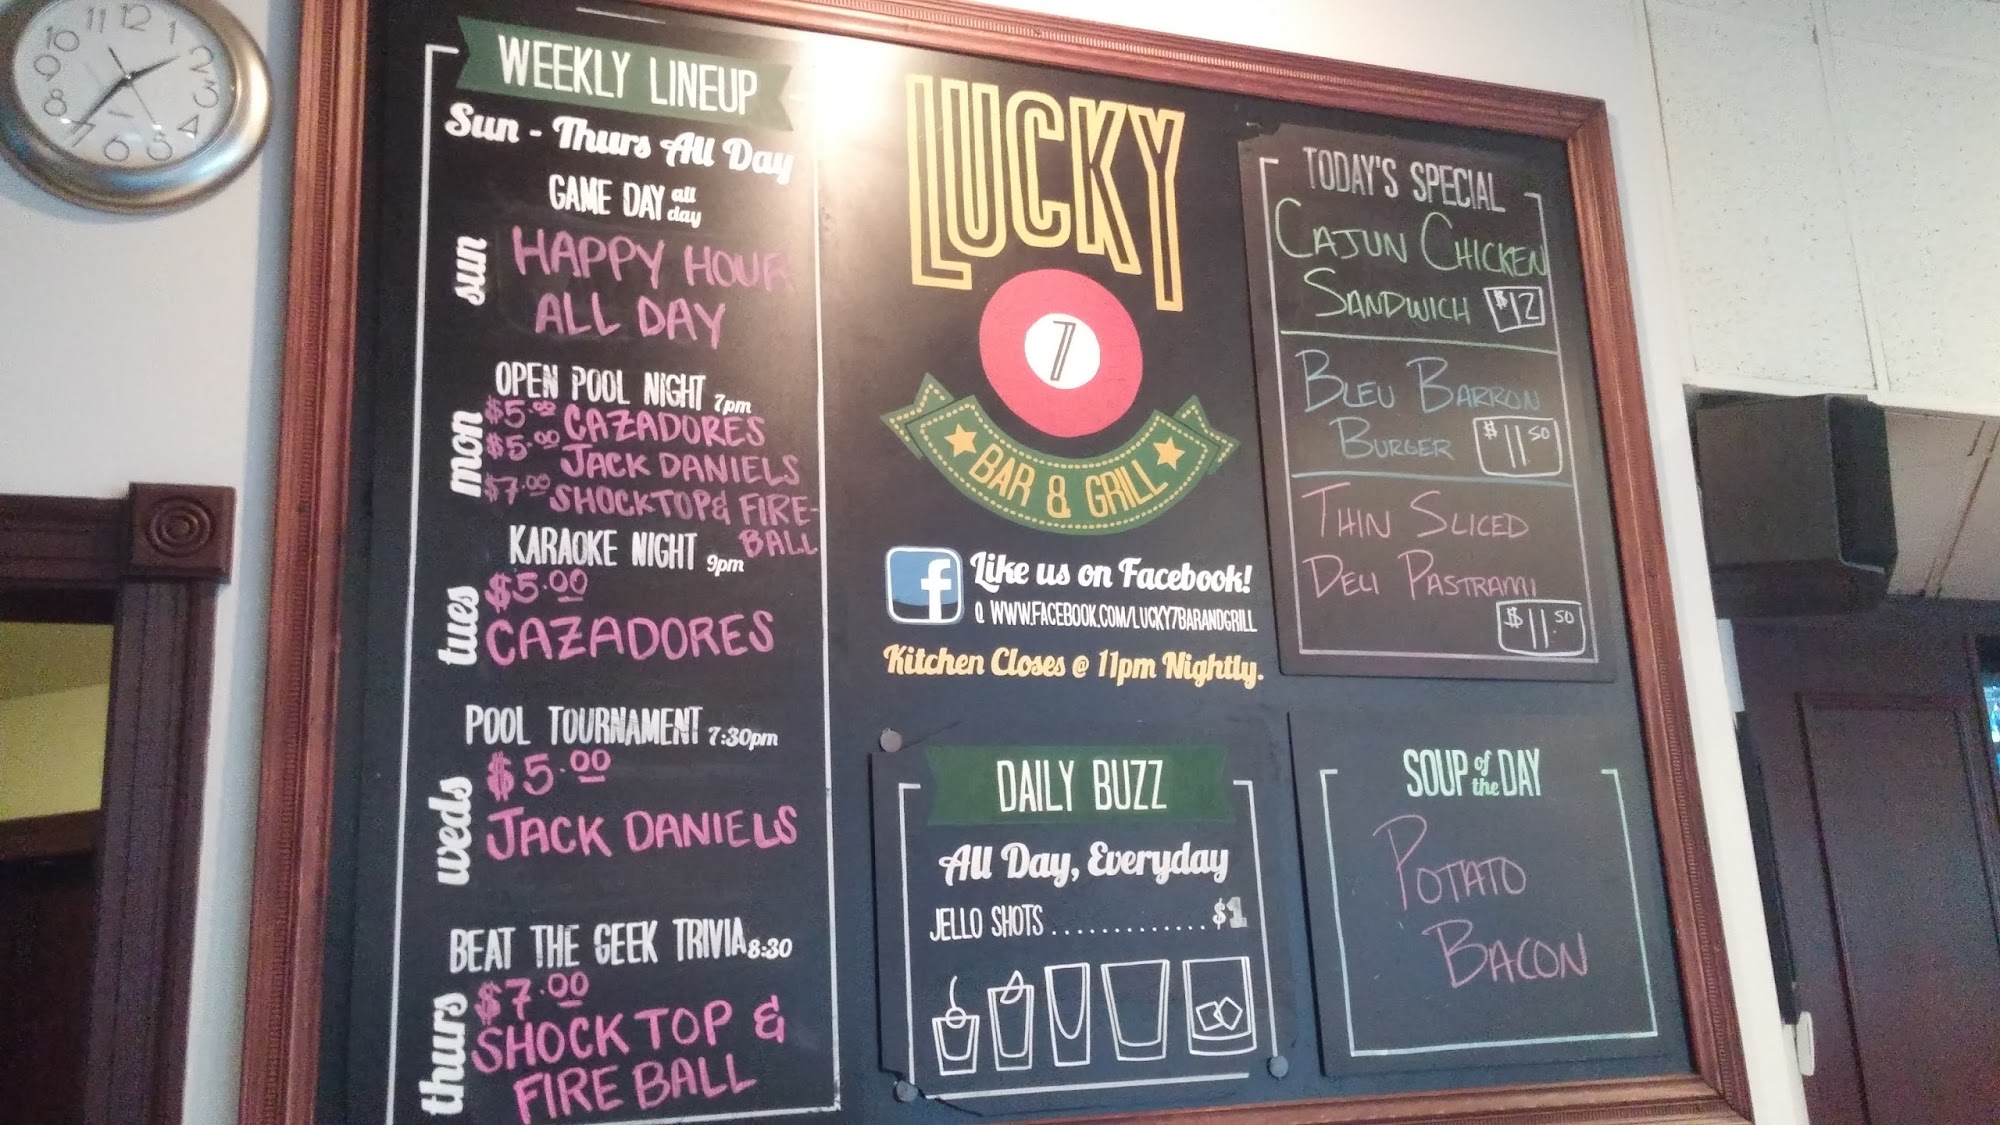 11 12 1
10 2
9 3
8 4
7 6 5
WEEKLY LINEUP
Sun - Thurs All Day
GAME DAY all day
sun
HAPPY HOUR
ALL DAY
OPEN POOL NIGHT 7pm
mon
$5.00 CAZADORES
$5.00 JACK DANIELS
$7.00 SHOCKTOP & FIRE-
BALL
KARAOKE NIGHT 9pm
tues
$5.00
CAZADORES
POOL TOURNAMENT 7:30pm
weds
$5.00
JACK DANIELS
BEAT THE GEEK TRIVIA 8:30
thurs
$7.00
SHOCK TOP &
FIRE BALL
LUCKY
7
BAR & GRILL
f Like us on Facebook!
@ WWW.FACEBOOK.COM/LUCKY7BARANDGRILL
Kitchen Closes @ 11pm Nightly.
DAILY BUZZ
All Day, Everyday
JELLO SHOTS ............. $1
TODAY'S SPECIAL
CAJUN CHICKEN
SANDWICH $12
BLEU BARRON
BURGER $11.50
THIN SLICED
DELI PASTRAMI
$11.50
SOUP of the DAY
POTATO
BACON